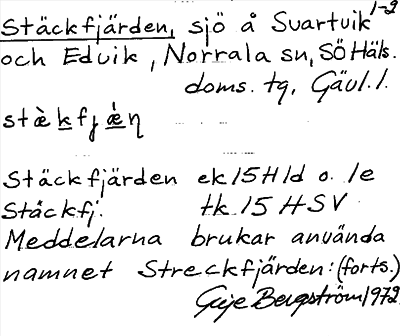 Stäckfjärden, sjö å Svartvik 1-2
och Edvik, Norrala sn, SÖ Häls.
doms. tg, Gävl. l.
stæ̀kfjæ̀ɳ
Stäckfjärden ek 15 H1d o. 1e
Stäckfj. tk. 15 HSV
Meddelarna brukar använda
namnet Streckfjärden: (forts.)
Bergström 1972